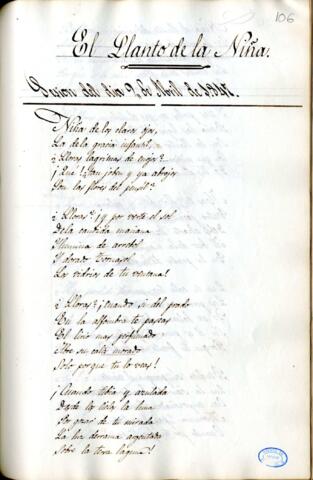 106
El Llanto de la Niña.
Sesion del dia 9 de Abril de 1842.
Niña de los claros ojos,
La de la gracia infantil,
¿Lloras lagrimas de enojos?
¡Que! ¿tan joven y ya abrojos
Son las flores del pensil?
¿Lloras? ¡y por verte el sol
De la candida mañana
Ilumina de arrebol
Y dorado tornasol
Los vidrios de tu ventana!
¿Lloras? ¡Cuando si del prado
En la alfombra te paseas
El lirio mas perfumado
Abre su caliz morado
Solo porque tu lo veas!
¡Cuando tibia y azulada
Desde los cielos la luna
Por gozar de tu mirada
La luz derrama argentada
Sobre la tersa laguna!